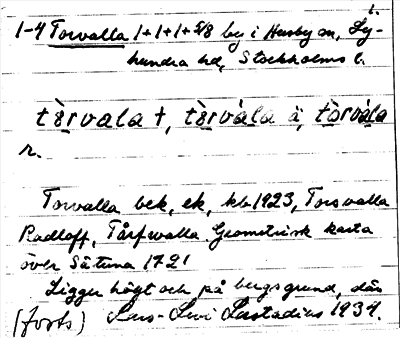 1.
1-4 Torvalla 1+1+1+5/8 by i Husby sn, Ly-
hundra hd, Stockholms l.
tòrvala †, tòrvàla ä, tòrvàla
r.
Torvalla bek, ek, kb 1923, Torsvalla
Radloff, Tårfwalla Geometrisk karta
över Sätuna 1721
Ligger högt och på bergsgrund, dens
(forts) Lars-Levi Læstadius 1934.